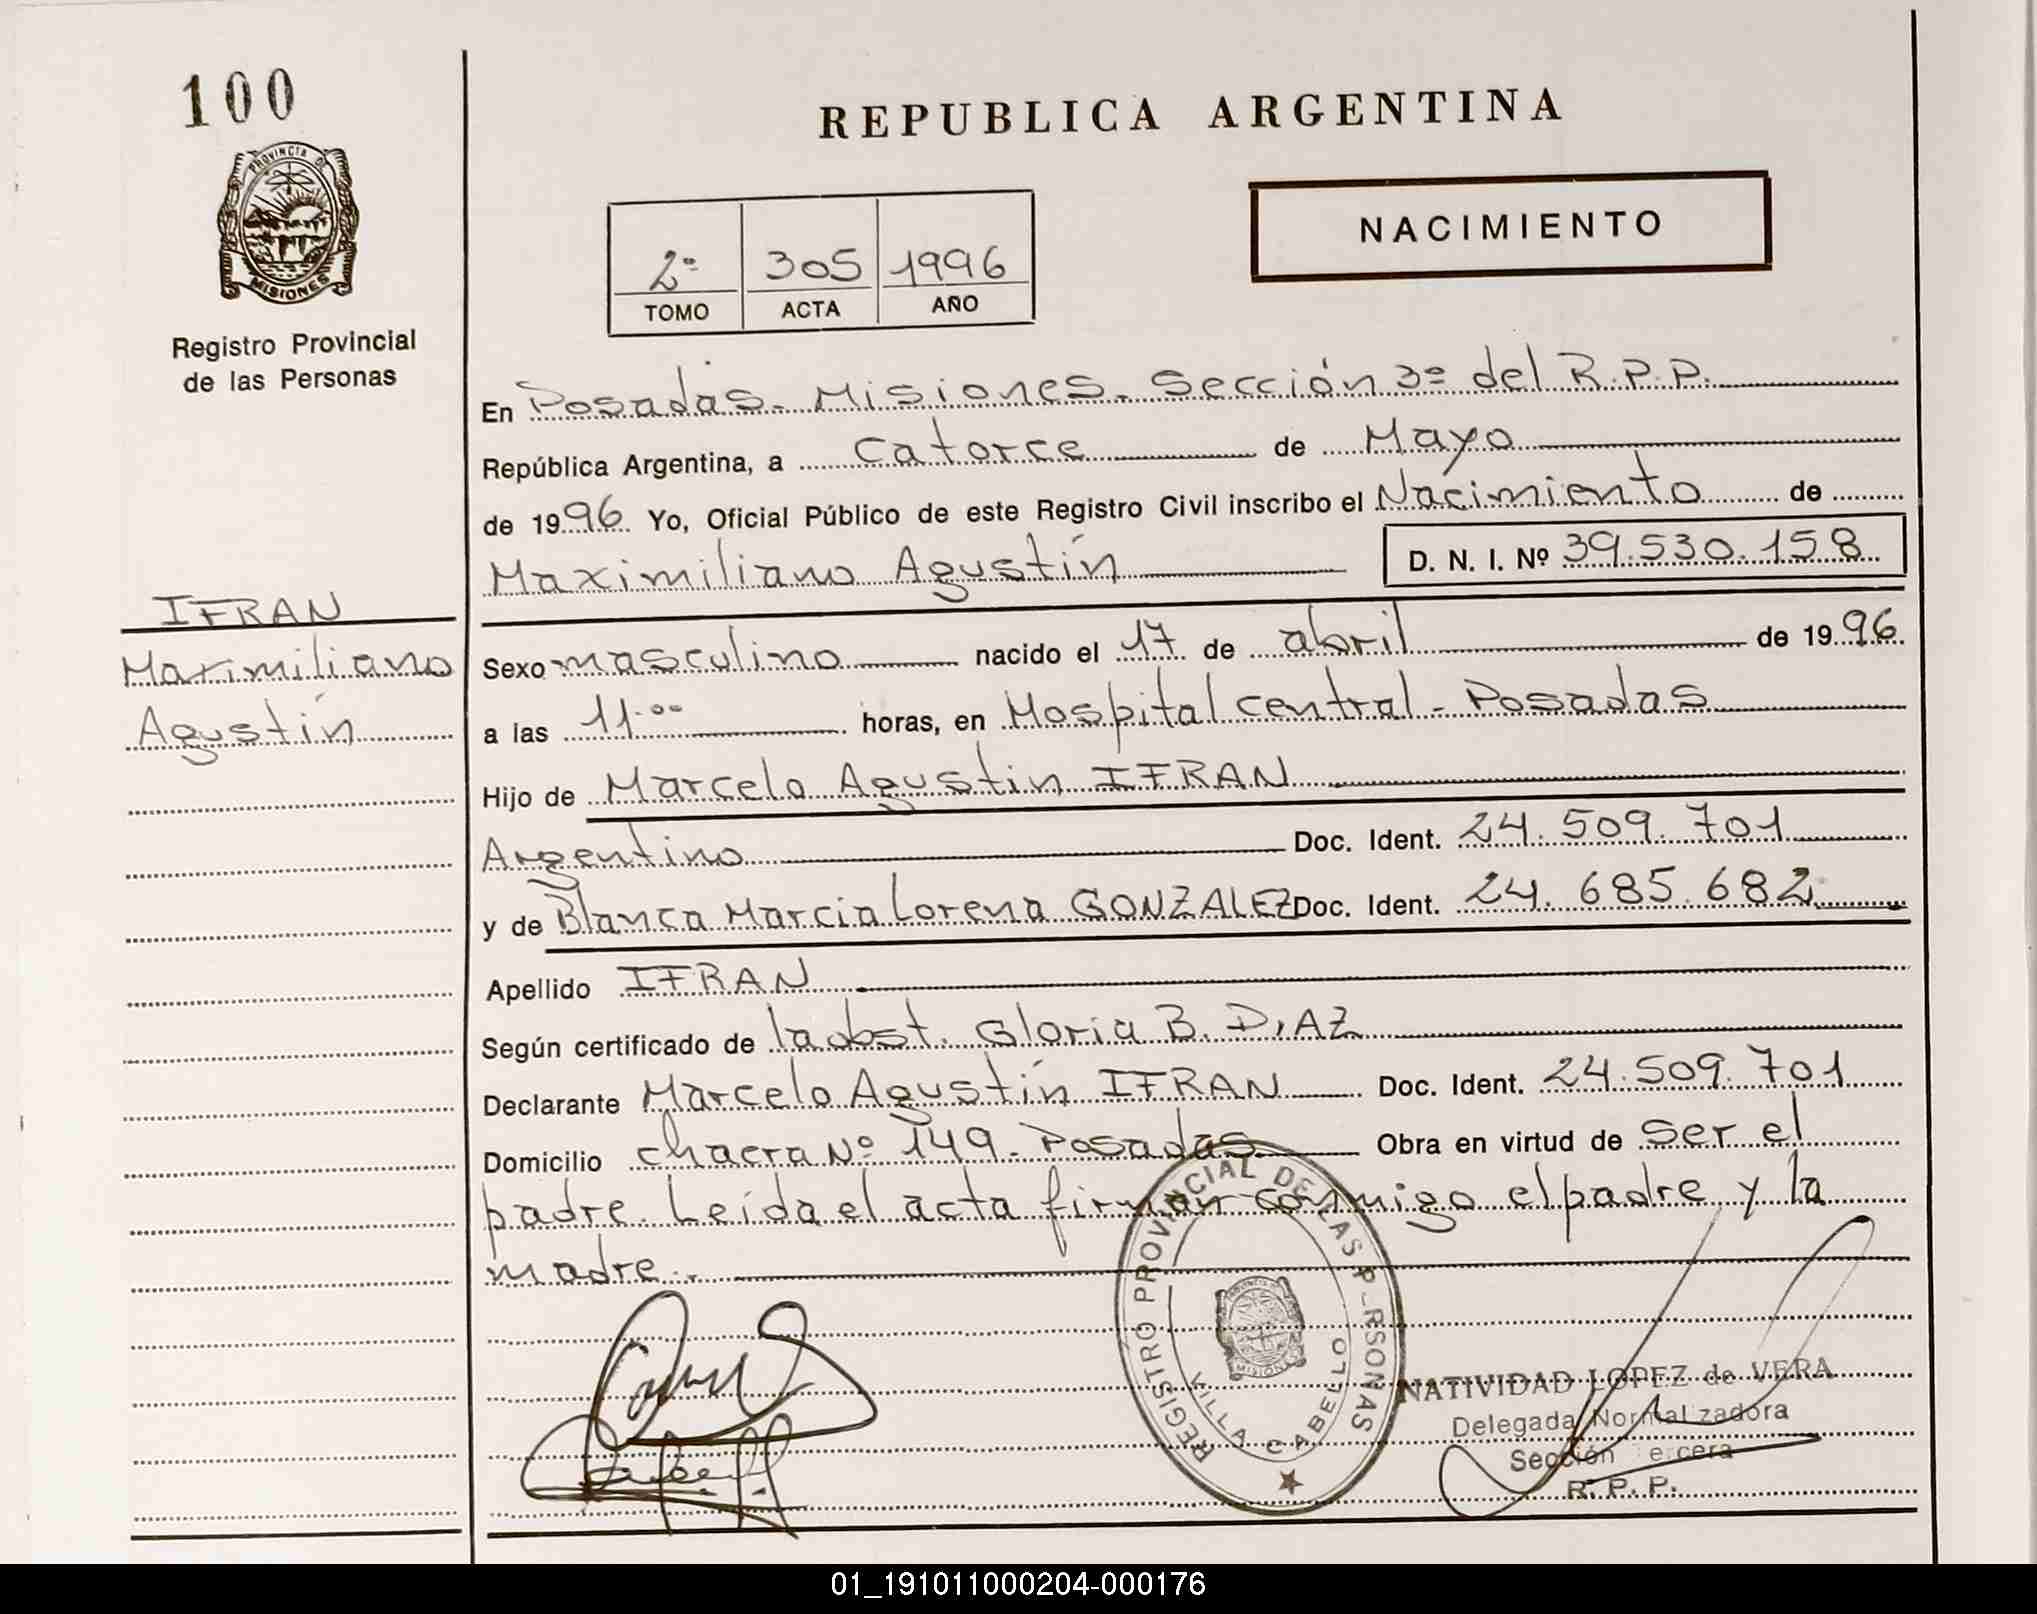 100
PROVINCIA DE
MISIONES
Registro Provincial
de las Personas
IFRAN
Maximiliano
Agustín
REPUBLICA ARGENTINA
NACIMIENTO
2º 305 1996
TOMO ACTA AÑO
En Posadas. Misiones. Sección 3º del R.P.P.
República Argentina, a catorce de Mayo
de 1996. Yo, Oficial Público de este Registro Civil inscribo el Nacimiento de
Maximiliano Agustín D. N. I. Nº 39.530.158
Sexo masculino nacido el 17 de abril de 1996
a las 11.00 horas, en Hospital central - Posadas
Hijo de Marcelo Agustin IFRAN
Argentino Doc. Ident. 24.509.701
y de Blanca Marcia Lorena GONZALEZ Doc. Ident. 24.685.682
Apellido IFRAN
Según certificado de la obst. Gloria B. DIAZ
Declarante Marcelo Agustín IFRAN Doc. Ident. 24.509.701
Domicilio chacra Nº 149. Posadas Obra en virtud de ser el
padre. Leída el acta firman conmigo el padre y la
madre.
REGISTRO PROVINCIAL DE LAS P-RSONAS
MISIONES
VILLA CABELLO
NATIVIDAD LOPEZ de VERA
Delegada Normalizadora
Sección Tercera
R. P. P.
01_191011000204-000176